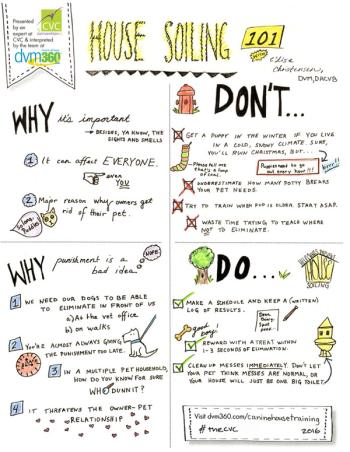 Presented
by an
expert at
CVC & interpreted
by the team at
dvm360
CVC
HOUSE SOILING 101
WITH
Elise
Christensen,
DVM, DACVB
WHY it's important
→ BESIDES, YA KNOW, THE
SIGHTS AND SMELLS
1 It can affect EVERYONE.
even
YOU
2 Major reason why owners get
rid of their pet.
So long,
Puddles
DON'T...
GET A PUPPY IN THE WINTER IF YOU LIVE
IN A COLD, SNOWY CLIMATE. SURE,
YOU'LL RUIN CHRISTMAS, BUT...
Please tell me
that's a lump
of coal.
Puppies need to go
out every hour!!!
brrr!!
UNDERESTIMATE HOW MANY POTTY BREAKS
YOUR PET NEEDS.
TRY TO TRAIN WHEN PUP IS OLDER. START ASAP.
WASTE TIME TRYING TO TEACH WHERE
NOT TO ELIMINATE.
WHY punishment is a
bad idea
NOPE.
1 WE NEED OUR DOGS TO BE ABLE
TO ELIMINATE IN FRONT OF US
a) At the vet office
b) on walks
2 YOU'RE ALMOST ALWAYS GIVING
THE PUNISHMENT TOO LATE.
3 IN A MULTIPLE PET HOUSEHOLD,
HOW DO YOU KNOW FOR SURE
WHO DUNNIT?
4 IT THREATENS THE OWNER-PET
RELATIONSHIP
DO...
HOUSE
SOILING
MAKE A SCHEDULE AND KEEP A (WRITTEN)
LOG OF RESULTS.
Dear
Diary:
Spot
good
boy!
REWARD WITH A TREAT WITHIN
1-3 SECONDS OF ELIMINATION.
CLEAN UP MESSES IMMEDIATELY. DON'T LET
YOUR PET THINK MESSES ARE NORMAL, OR
YOUR HOUSE WILL JUST BE ONE BIG TOILET.
Visit dvm360.com/caninehousetraining
#theCVC 2016